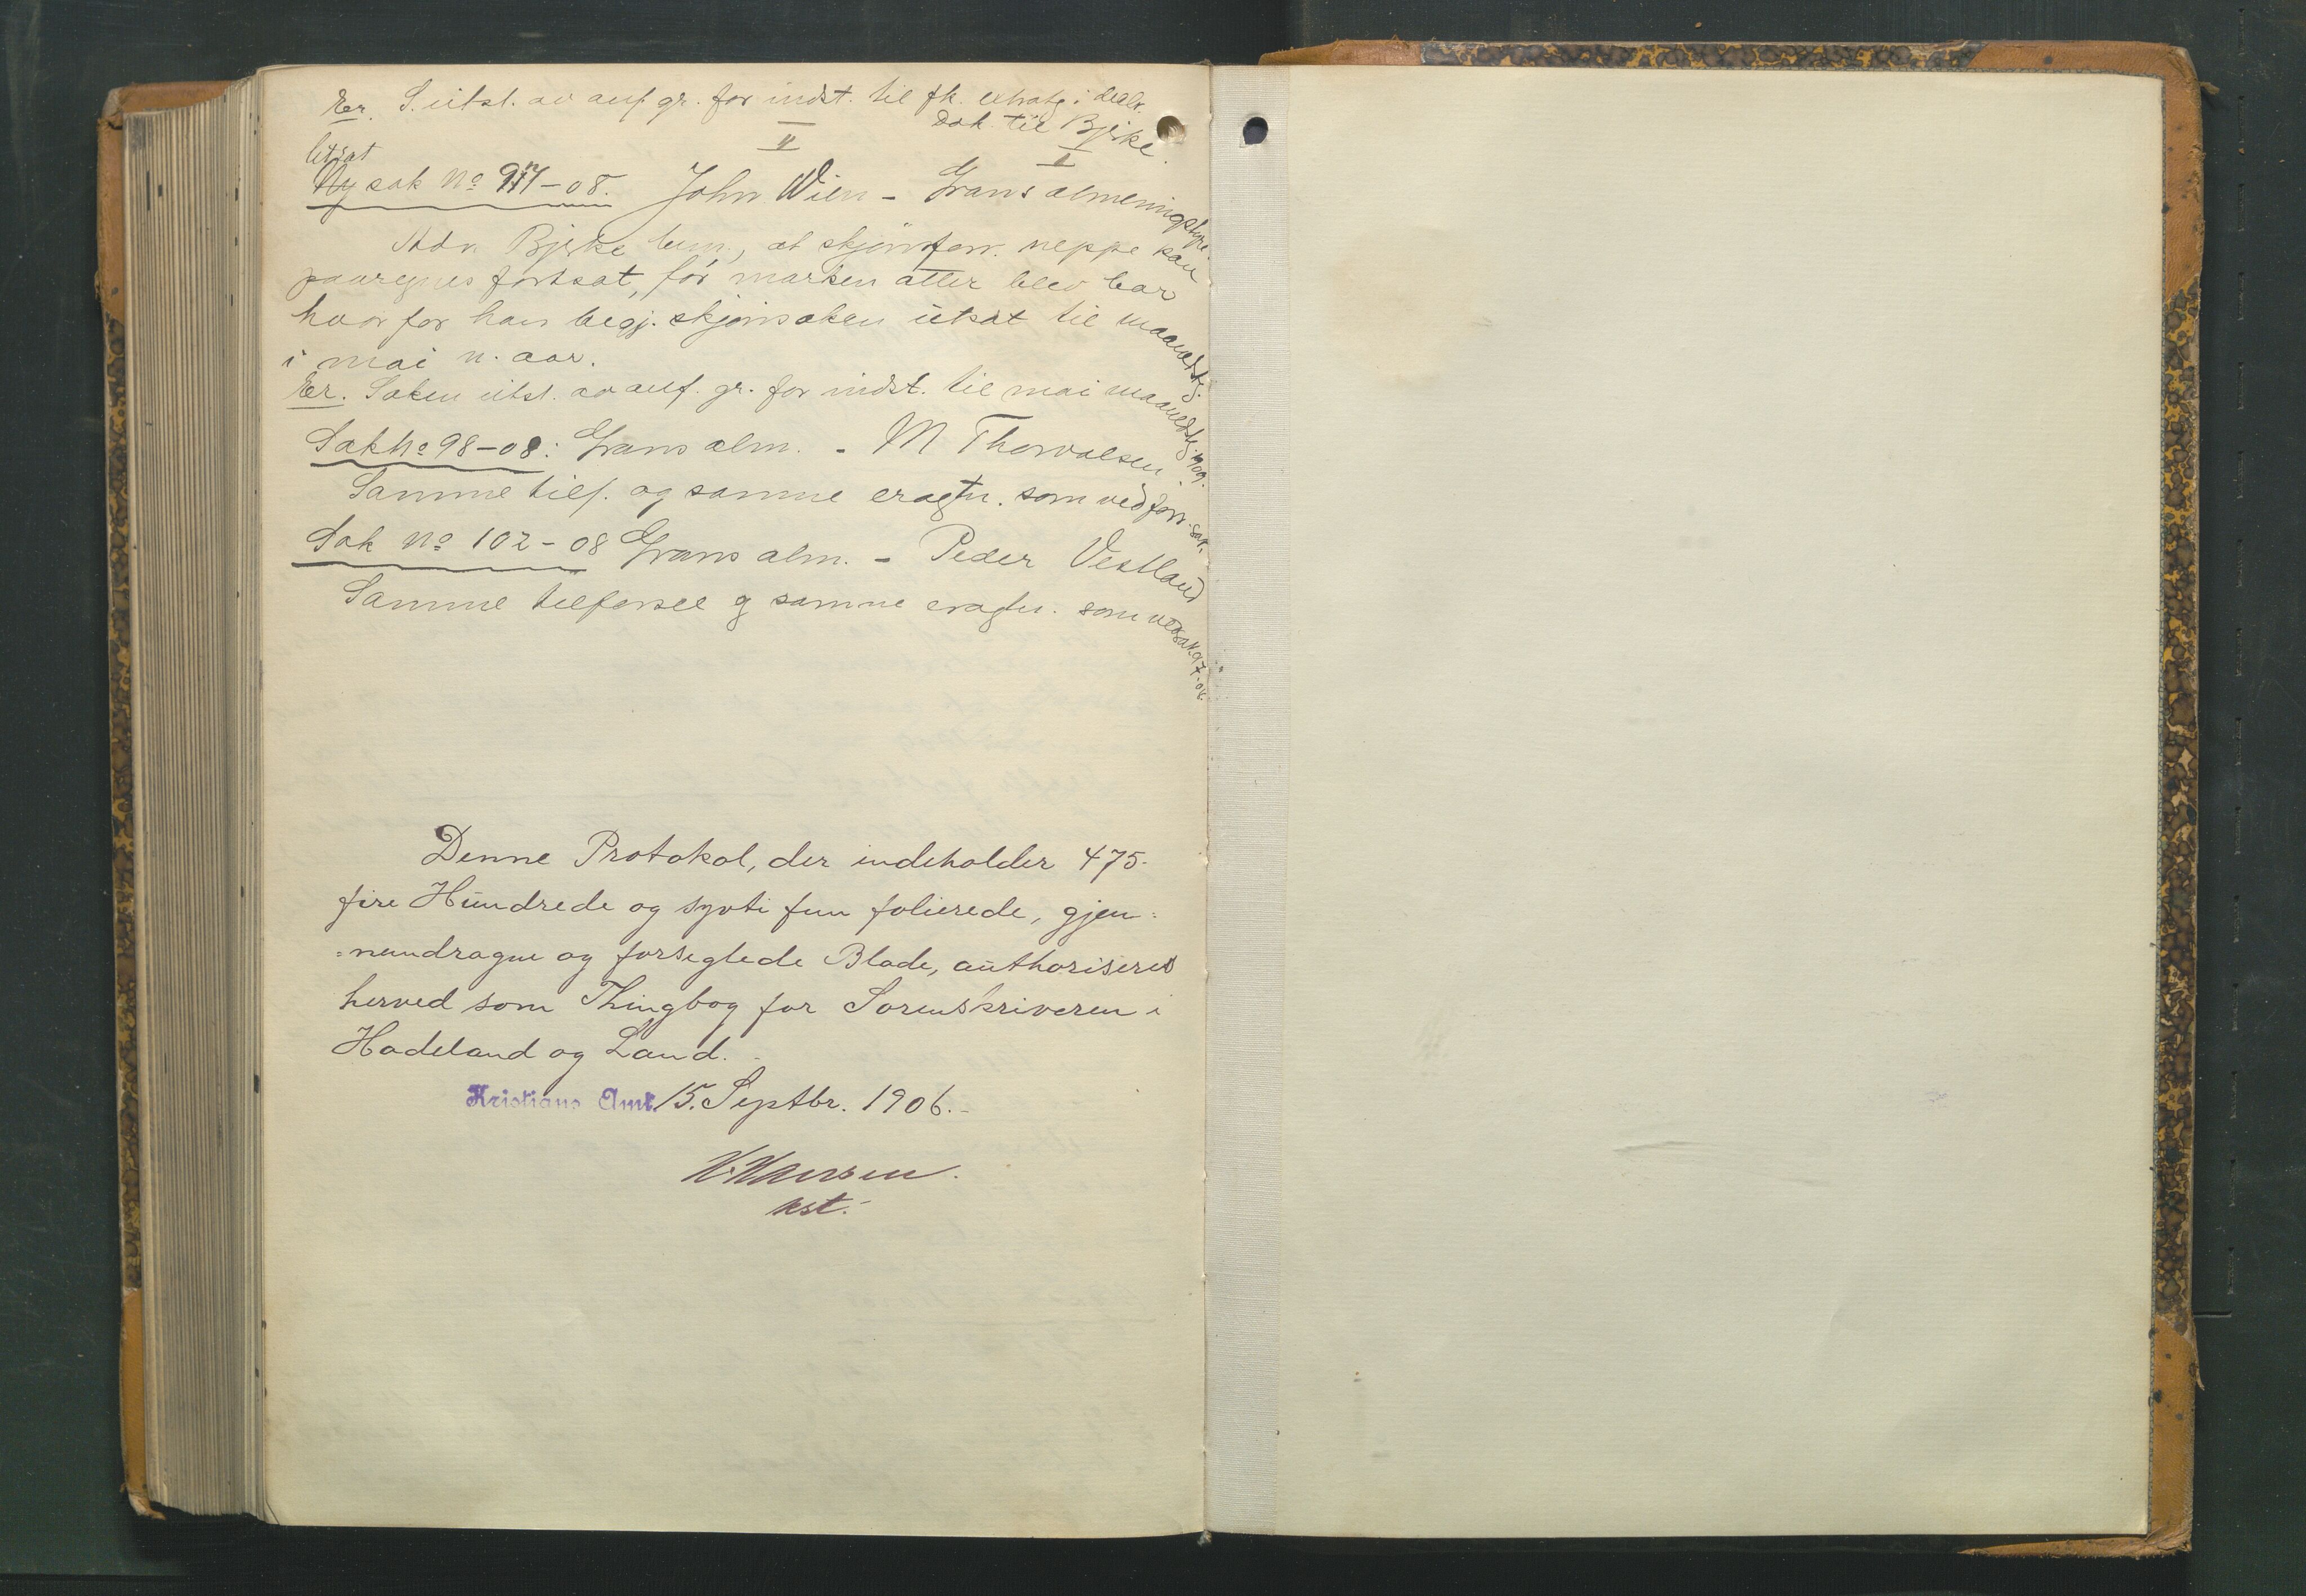 Er. S. utsl. av anf. gr. for indst. til fk. extratg i desbr.
Dok til Bjerke.
II
I
Utsat
Ny sak No 97-08. John Wien - Grans almenings
Adv. Bjerke bem., at skjønsforr. neppe kan
paaregnes fortsat, før marken atter blev bar
hvorfor han begj. skjønsaken utsat til maanedstg.
i mai n. aar.
Er. Saken utsl. av anf. gr. for indst. til mai maanedstg 1909.
Sak No 98-08: Grans alm. - M Thorvalsen.
Samme tilf. og samme eragtn. som ved forr. sak.
Sak No 102-08 Grans alm. - Peder Vestland
Samme tilførsel og samme eragtn. som ved sak 97-08.
Denne Protokol, der indeholder 475-
fire Hundrede og sytti fem folierede, gjen-
=nemdragne og forseglede Blade, authoriseres
herved som Thingbog for Sorenskriveren i
Hadeland og Land.
Kristians Amt 15. Septbr. 1906.
Hansen.
kst.